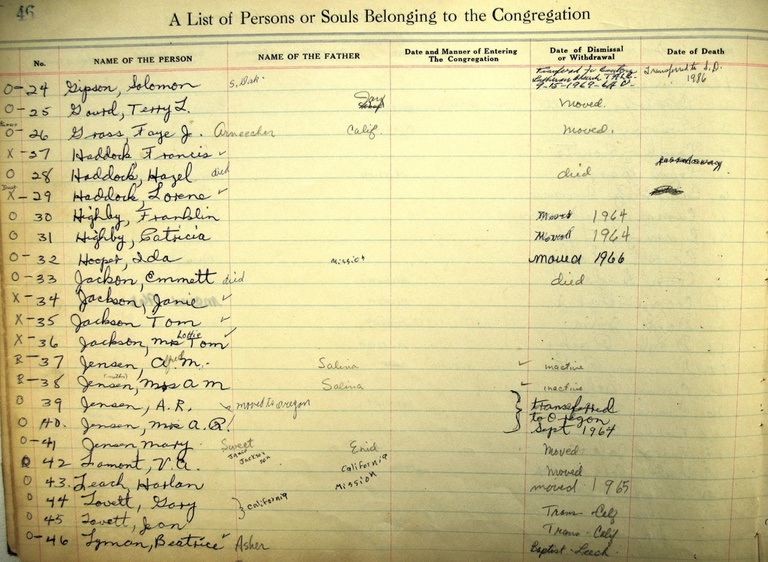 46
A List of Persons or Souls Belonging to the Congregation
No. NAME OF THE PERSON NAME OF THE FATHER Date and Manner of Entering The Congregation Date of Dismissal or Withdrawal Date of Death
O-24 Gipson, Solomon S. Dak. Lutheran Church 9-15-1969 Transferred to S.D. 1986
O-25 Gourd, Terry L. Jay Moved.
O-26 Grass Faye J. Arneecher Calif. Moved.
X-27 Haddock Francis ✓
O 28 Haddock, Hazel died died
X-29 Haddock, Lorene ✓
O 30 Highby, Franklin Moved 1964
O 31 Highby, Patricia Moved 1964
O-32 Hooper, Ida Mission moved 1966
O-33 Jackson, Emmett died died
X-34 Jackson, Janie ✓
X-35 Jackson Tom ✓
X-36 Jackson, Mrs Lottie Tom ✓
R-37 Jensen, A M. Salina ✓ inactive
R-38 Jensen, Mrs A M Salina ✓ inactive
O 39 Jensen, A.R. moved to oregon transferred to Oregon Sept 1964
O 40. Jensen, Mrs A.R.
O-41 Jensen Mary Sweet Enid Moved
O 42 Lamont, V.A. Jackson California Moved
O 43. Leach, Harlan Mission moved 1965
O 44 Lovett, Gary } California Trans-Calif
O 45 Lovett, Jean Trans-Calif
O-46 Lyman, Beatrice ✓ Asher Baptist-Leech.